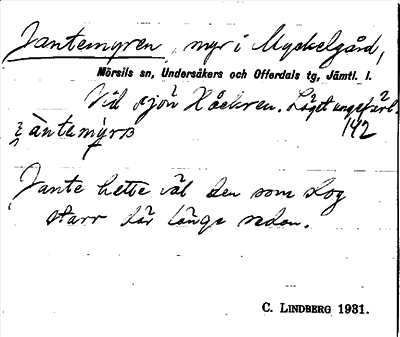 Jantemyren, myr i Myckelgård,
Mörsils sn, Undersåkers och Offerdals tg, Jämtl. l.
Vid sjön Håckren. Läget ungefärl.
142
Jante hette väl den som slog
starr där länge sedan.
C. LINDBERG 1931.